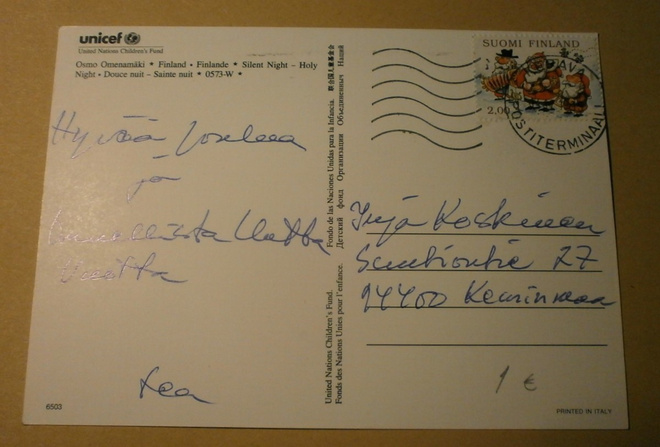 unicef
United Nations Children's Fund
Osmo Omenamäki • Finland • Finlande • Silent Night - Holy
Night • Douce nuit - Sainte nuit • 0573-W •
Hyvää Joulua
ja
Onnellista Uutta
Vuotta
Lea
6503
United Nations Children's Fund. Fondo de las Naciones Unidas para la Infancia. 联合国儿童基金会
Fonds des Nations Unies pour l'enfance. Детский фонд Организации Объединенных Наций
SUOMI FINLAND
2,00
POSTITERMINAALI
Irja Koskinen
27
94400 Keminmaa
1 €
PRINTED IN ITALY